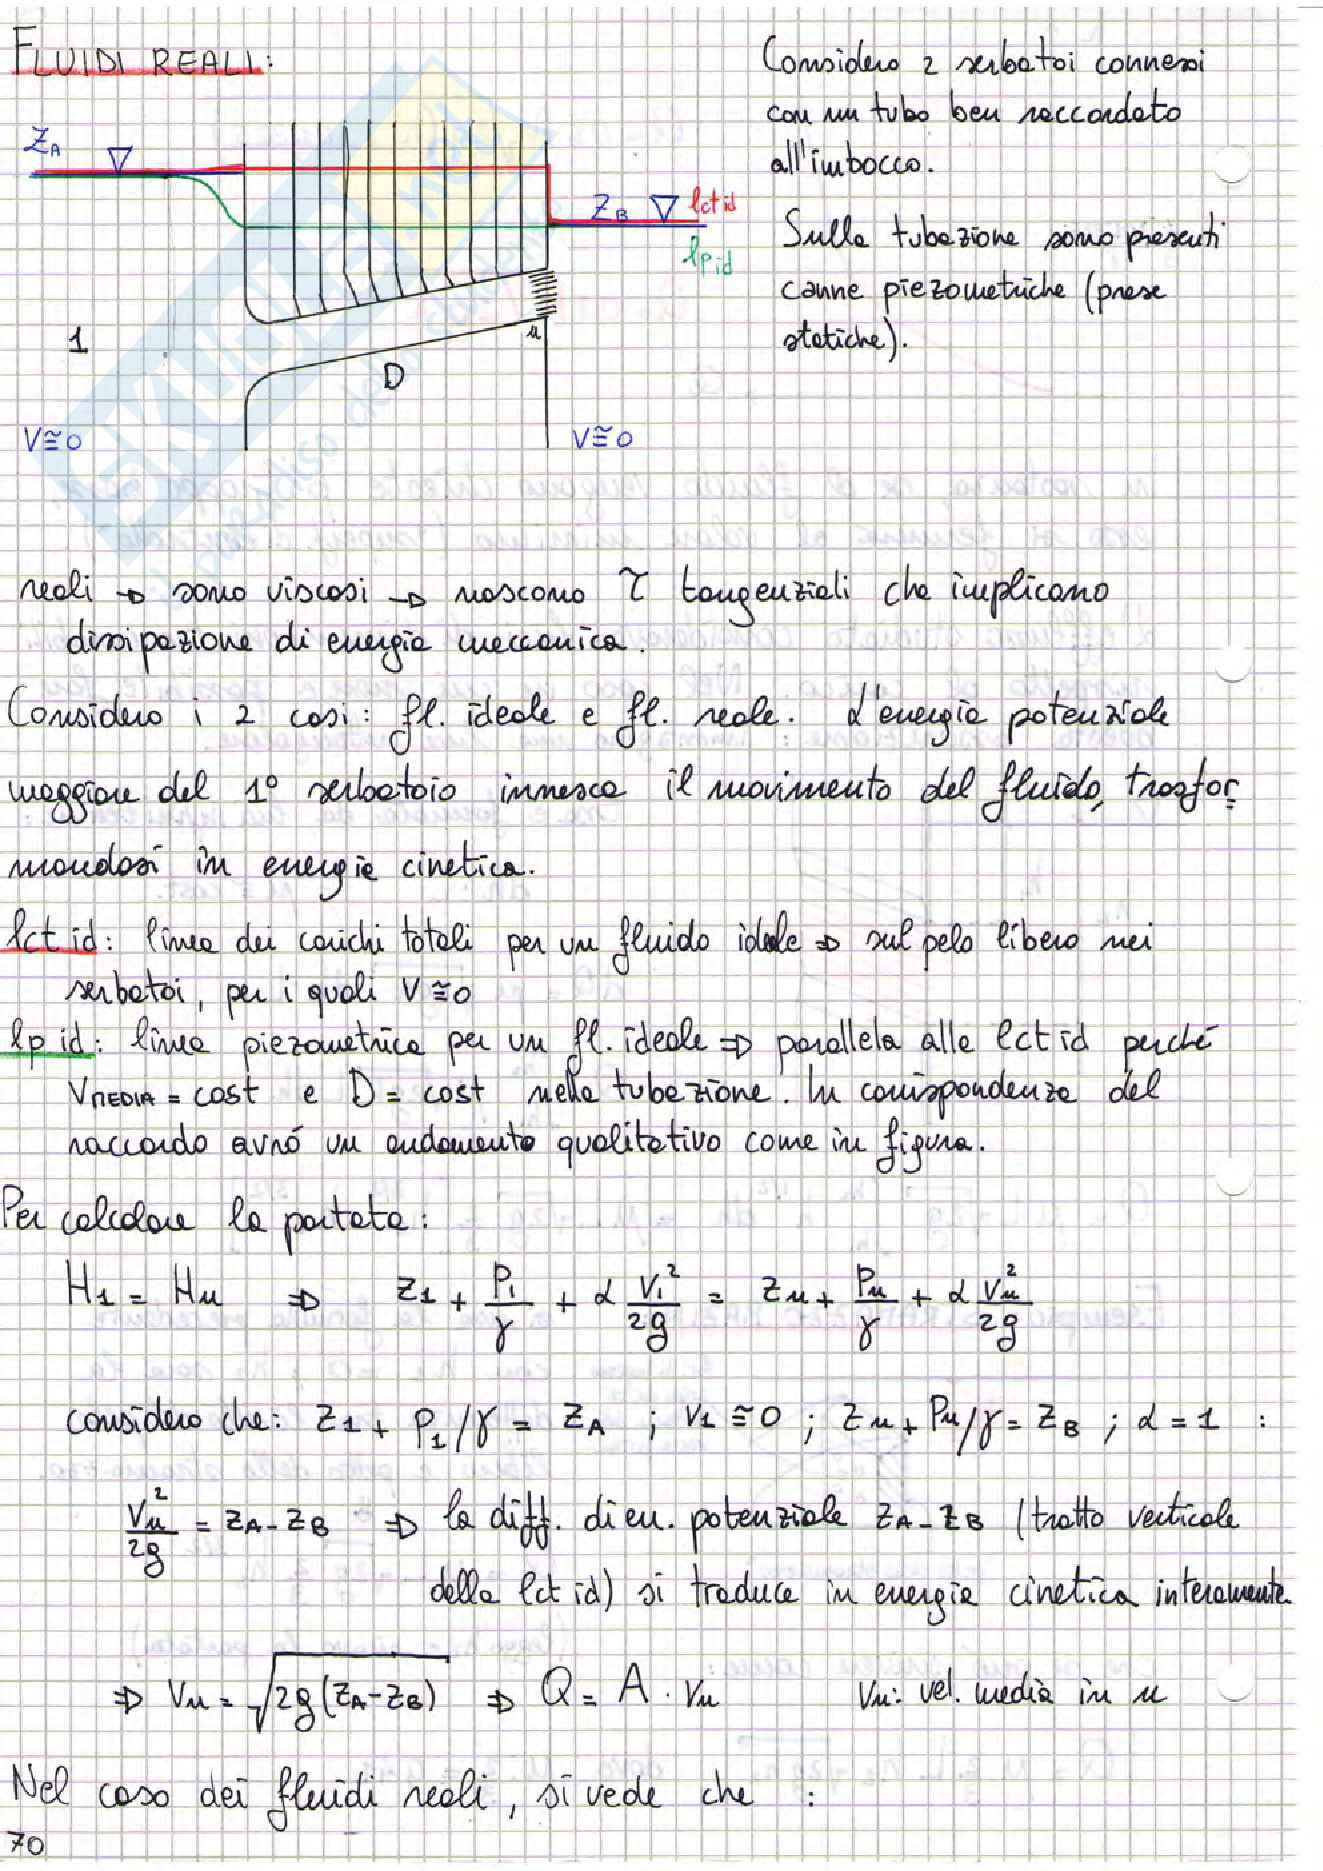 FLUIDI REALI:
Considero 2 serbatoi connessi
con un tubo ben raccordato
all'imbocco.
Sulla tubazione sono presenti
canne piezometriche (prese
statiche).
ZA
ZB
lct id
lp id
1
u
D
V≅0
V≅0
reali → sono viscosi → nascono τ tangenziali che implicano
dissipazione di energia meccanica.
Considero i 2 casi: fl. ideale e fl. reale. L'energia potenziale
maggiore del 1° serbatoio innesca il movimento del fluido, trasfor
mandosi in energia cinetica.
lct id: linea dei carichi totali per un fluido ideale ⇒ sul pelo libero nei
serbatoi, per i quali V≅0
lp id: linea piezometrica per un fl. ideale ⇒ parallela alla lct id perché
VMEDIA = cost e D = cost nella tubazione. In corrispondenza del
raccordo avrò un andamento qualitativo come in figura.
Per calcolare la portata:
H1 = Hu ⇒ z1 + P1/γ + α V1²/2g = zu + Pu/γ + α Vu²/2g
considero che: z1 + P1/γ = ZA ; V1 ≅ 0 ; zu + Pu/γ = ZB ; α = 1 :
Vu²/2g = ZA - ZB ⇒ la diff. di en. potenziale ZA - ZB (tratto verticale
della lct id) si traduce in energia cinetica interamente
⇒ Vu = √2g(ZA-ZB) ⇒ Q = A · Vu Vu: vel. media in u
Nel caso dei fluidi reali, si vede che :
70